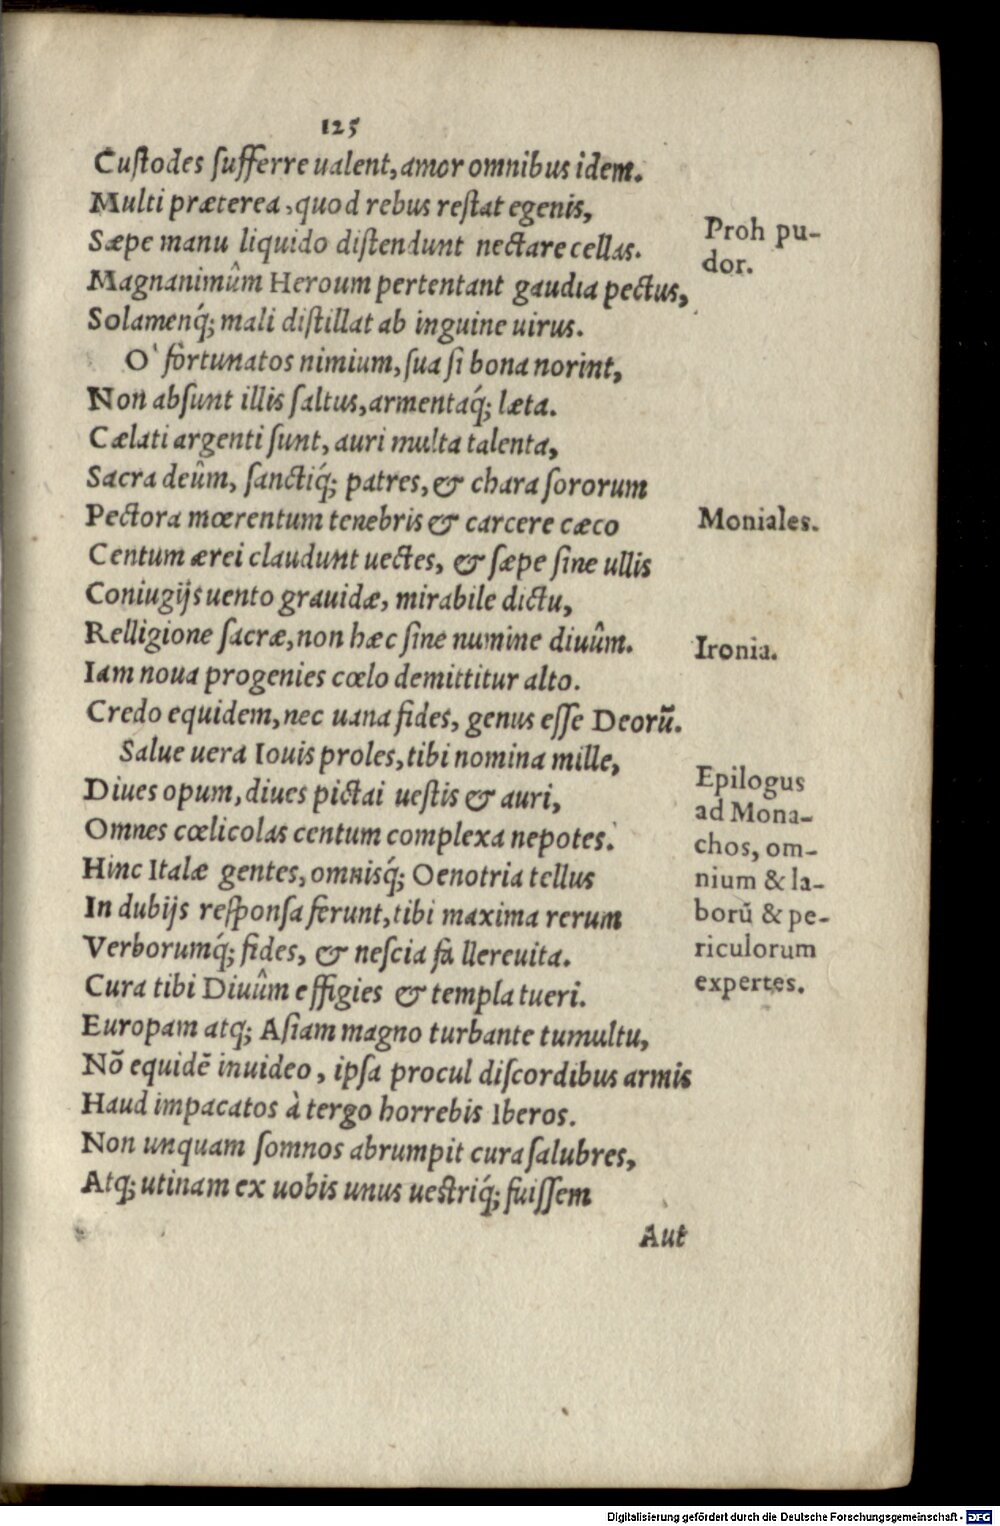 125
Cuſtodes ſufferre ualent, amor omnibus idem.
Multi præterea, quod rebus reſtat egenis,
Sæpe manu liquido diſtendunt nectare cellas.
Proh pu-
dor.
Magnanimûm Heroum pertentant gaudia pectus,
Solamenq́; mali diſtillat ab inguine uirus.
O` fortunatos nimium, ſua ſi bona norint,
Non abſunt illis ſaltus, armentaq́; læta.
Cælati argenti ſunt, auri multa talenta,
Sacra deûm, ſanctiq́; patres, & chara ſororum
Pectora mœrentum tenebris & carcere cæco
Moniales.
Centum ærei claudunt uectes, & ſæpe ſine ullis
Coniugijs uento grauidæ, mirabile dictu,
Relligione ſacræ, non hæc ſine numine diuûm.
Ironia.
Iam noua progenies cœlo demittitur alto.
Credo equidem, nec uana fides, genus eſſe Deorū.
Salue uera Iouis proles, tibi nomina mille,
Diues opum, diues pictai ueſtis & auri,
Omnes cœlicolas centum complexa nepotes.
Hinc Italæ gentes, omnisq́; Oenotria tellus
In dubijs reſponſa ferunt, tibi maxima rerum
Verborumq́; fides, & neſcia fa llere uita.
Cura tibi Diuûm effigies & templa tueri.
Epilogus
ad Mona-
chos, om-
nium & la-
borū & pe-
riculorum
expertes.
Europam atq; Aſiam magno turbante tumultu,
Nō equidē inuideo, ipſa procul diſcordibus armis
Haud impacatos à tergo horrebis Iberos.
Non unquam ſomnos abrumpit cura ſalubres,
Atq; utinam ex uobis unus ueſtriq́; fuiſſem
Aut
Digitalisierung gefördert durch die Deutsche Forschungsgemeinschaft - DFG